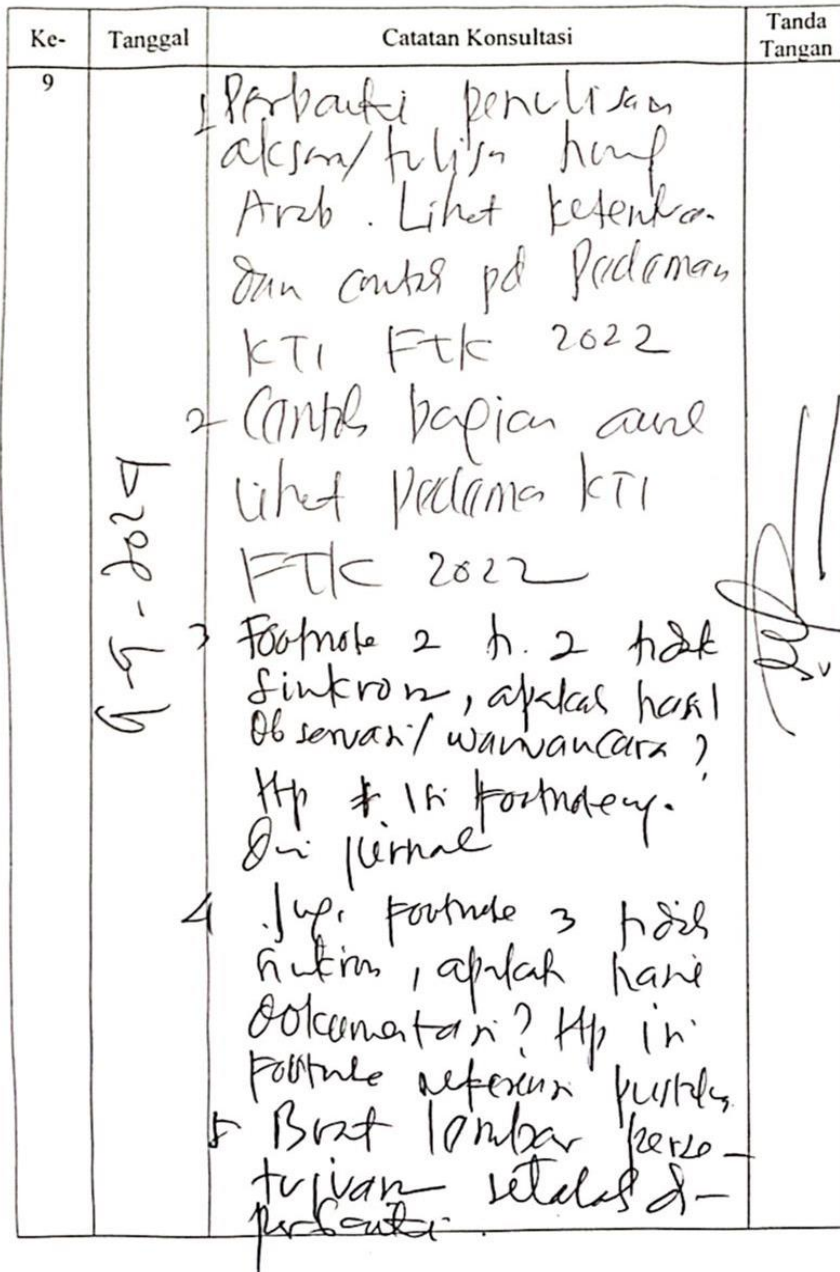 Ke- Tanggal Catatan Konsultasi Tanda Tangan
9
9-9-2024
1 Perbaiki penulisan
aksara/tulisan huruf
Arab. Lihat ketentuan
dan contoh pd Pedoman
KTI FTK 2022
2 Contoh bagian awal
lihat Pedoman KTI
FTK 2022
3 Footnote 2 h. 2 tidak
sinkron, apakah hasil
Observasi/wawancara?
Ttp isi footnotenya
dari jurnal
4 Juga footnote 3 tidak
sinkron, apakah hasil
Dokumentasi? Ttp isi
footnote referensi pustaka
5 Buat lembar perse-
tujuan setelah di-
perbaiki.